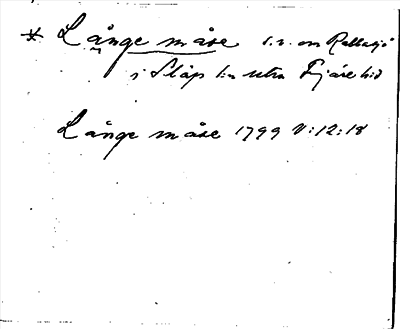 * Långe måse s.v. om Rallasjö
i Släp sn utm Fjäre hd
Långe måse 1799 V:12:18